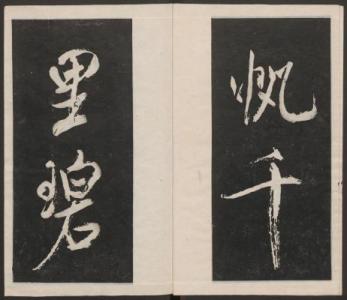 帆千
里碧